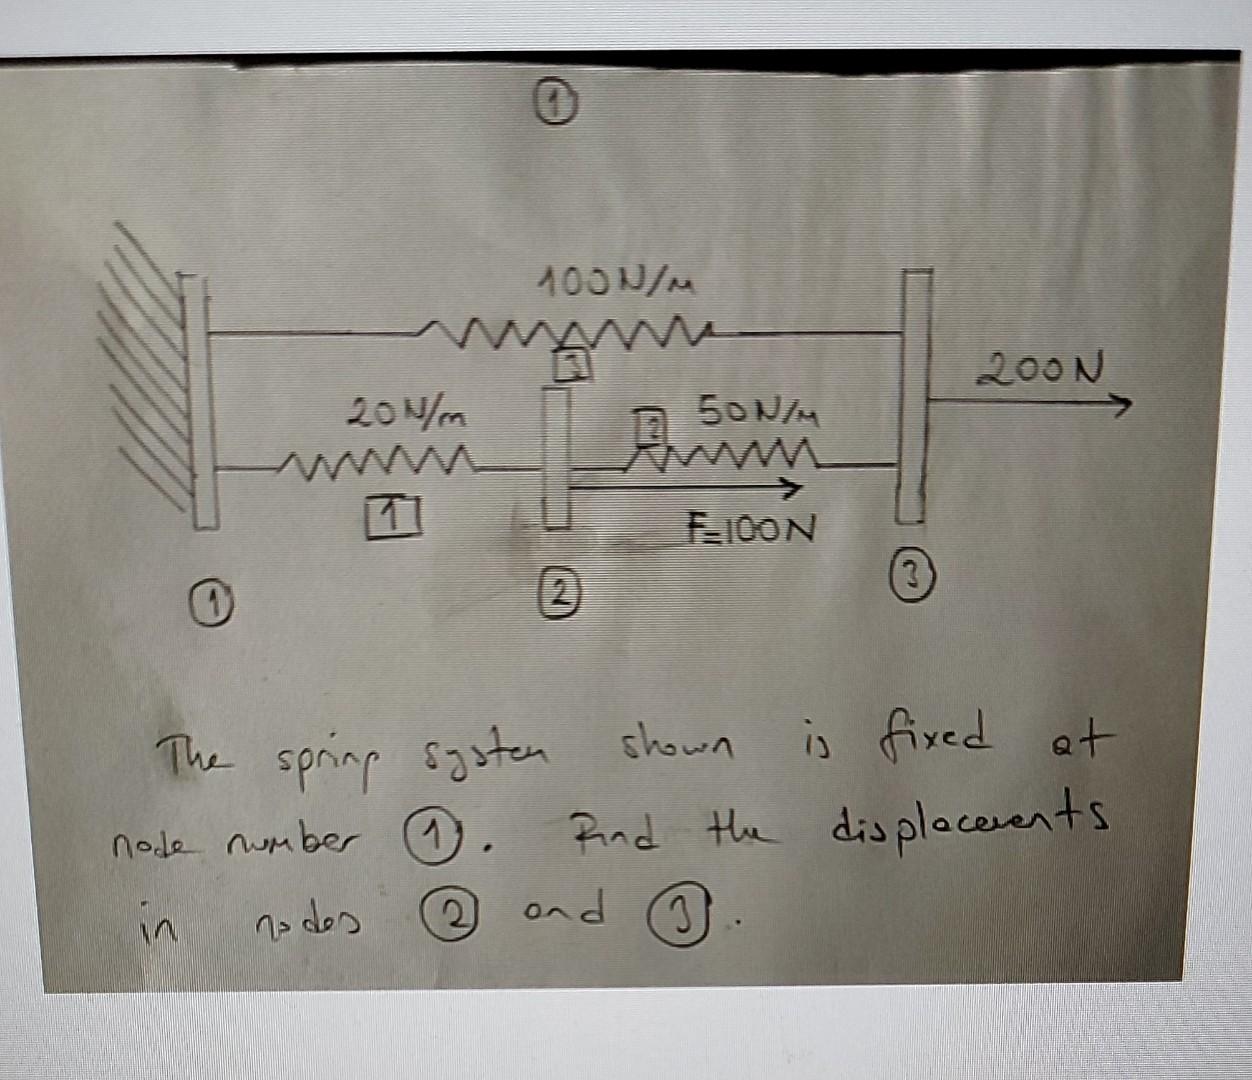 ①
100N/m
3
200N
20N/m
2
50N/m
1
F=100N
①
②
③
The spring system shown is fixed at
node number ①. Find the displacements
in nodes ② and ③.